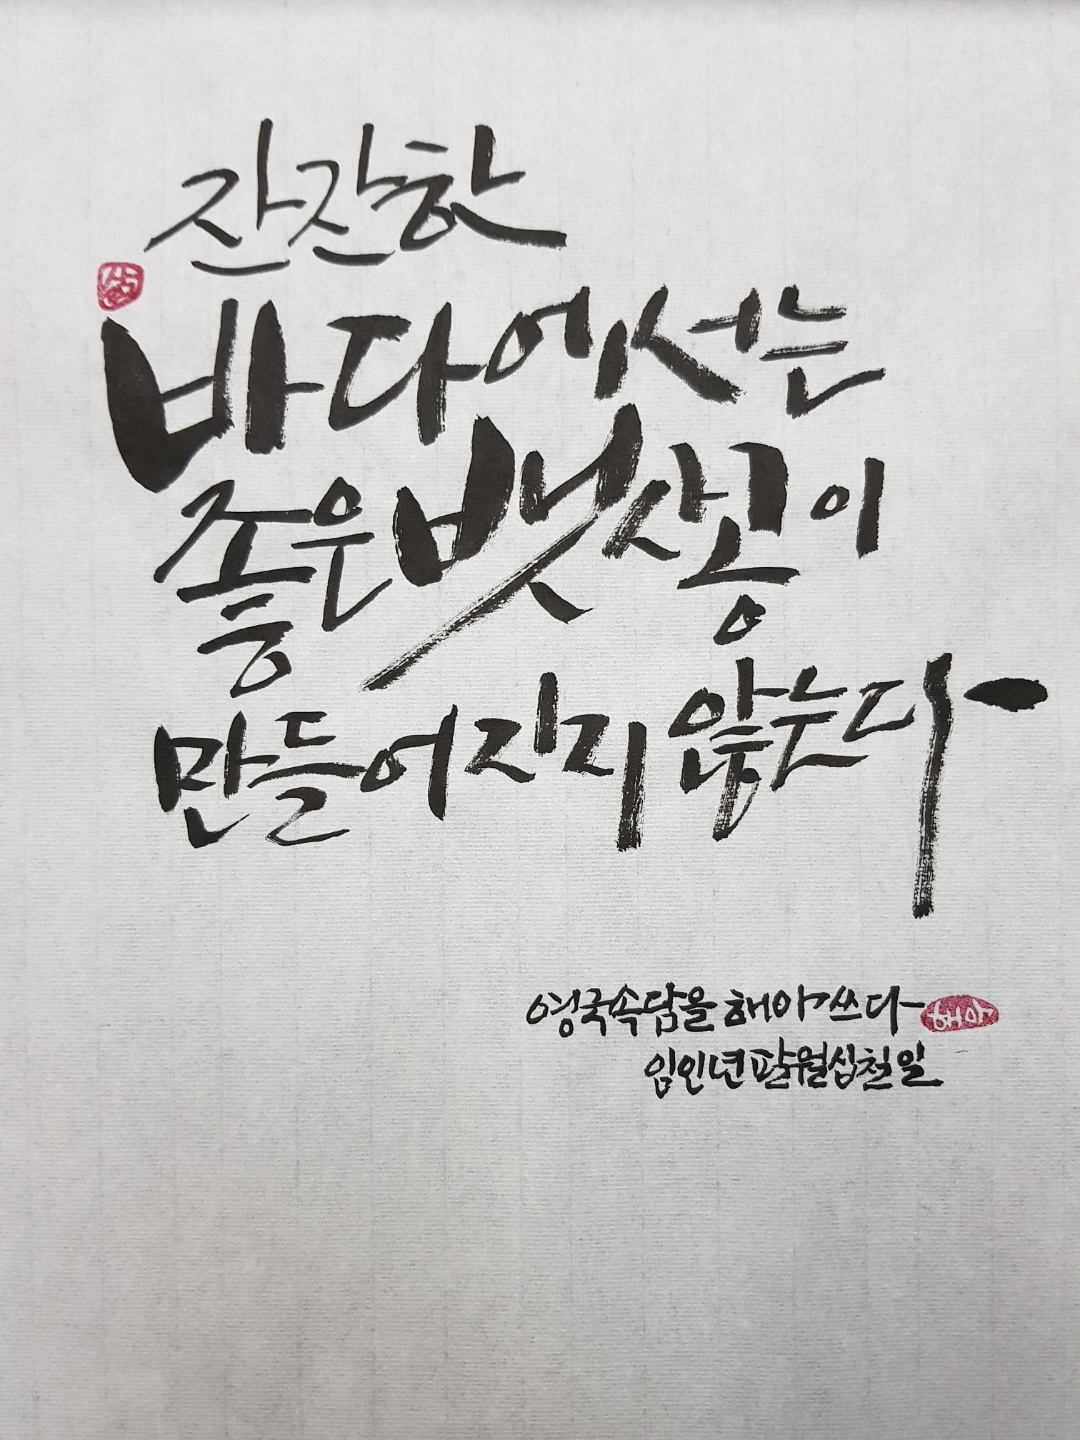 잔잔한
바다에서는
좋은 뱃사공이
만들어지지 않는다
영국속담을 해야 쓰다
해야
임인년 팔월 십칠일